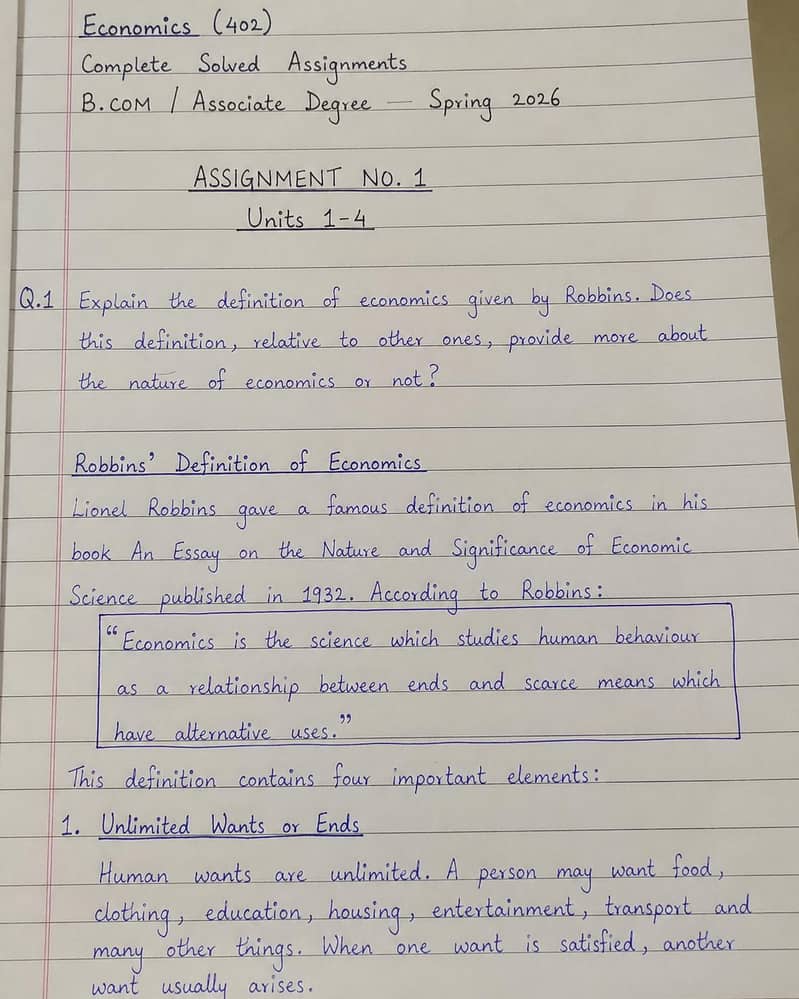 Economics (402)
Complete Solved Assignments
B.COM / Associate Degree — Spring 2026
ASSIGNMENT NO. 1
Units 1-4
Q.1 Explain the definition of economics given by Robbins. Does
this definition, relative to other ones, provide more about
the nature of economics or not?
Robbins' Definition of Economics
Lionel Robbins gave a famous definition of economics in his
book An Essay on the Nature and Significance of Economic
Science published in 1932. According to Robbins:
“Economics is the science which studies human behaviour
as a relationship between ends and scarce means which
have alternative uses.”
This definition contains four important elements:
1. Unlimited Wants or Ends
Human wants are unlimited. A person may want food,
clothing, education, housing, entertainment, transport and
many other things. When one want is satisfied, another
want usually arises.